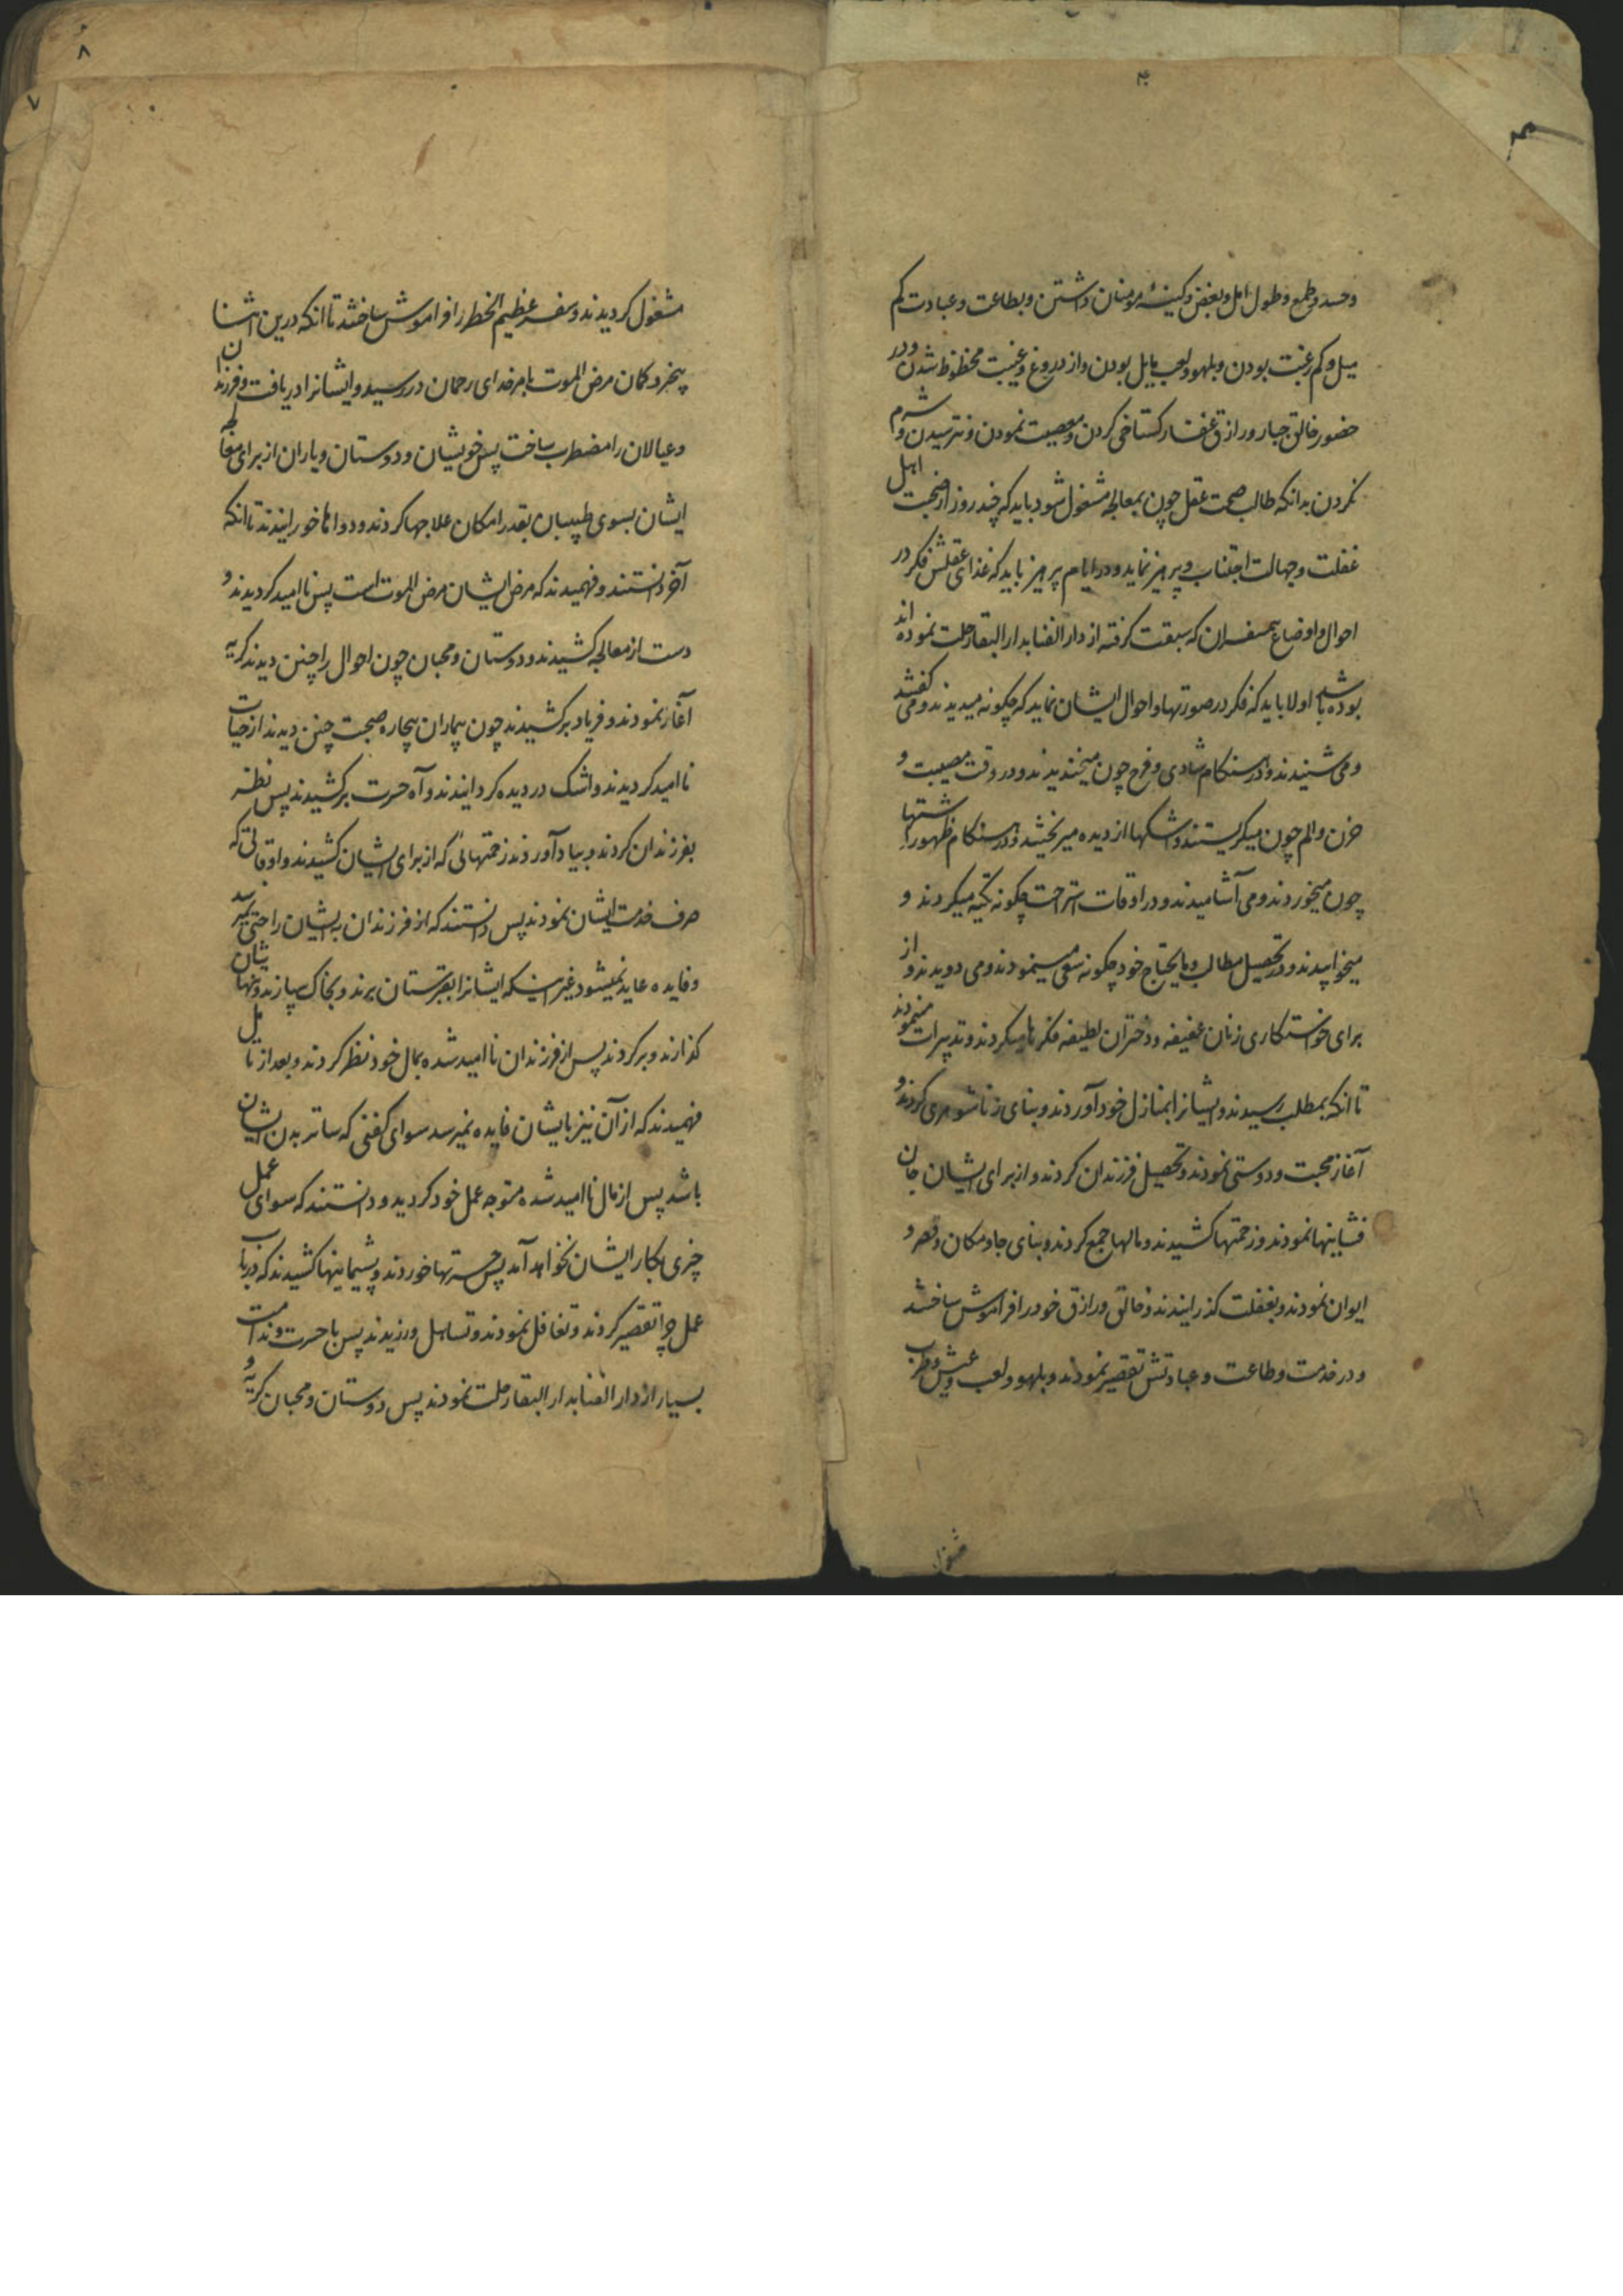 ۴
وحسد و طمع و طول امل و بغض و کینهٔ مومنان داشتن و بطاعت و عبادت کم
میل و کم رغبت بودن و بلهو و لعب مایل بودن و از دروغ و غیبت محظوظ شدن و در
حضور خالق جبار و رازق غفار کستاخی کردن و معصیت نمودن و نترسیدن و شرم
نکردن بدانکه طالب صحت عقل چون بمعالجه مشغول شود باید که چند روز از صحبت اهل
غفلت و جهالت اجتناب و پرهیز نماید و در ایام پرهیز باید که غذای عقلش فکر در
احوال و اوضاع همسفران که سبقت کرفته از دار الفنا بدار البقا رحلت نموده اند
بوده باشد اولا باید که فکر در صورتها و احوال ایشان نماید که چکونه میدیدند و می کفتند
و می شنیدند و در هنکام شادی و فرح چون میخندیدند و در وقت مصیبت و
حزن و الم چون میکریستند و اشکها از دیده میریختند و در هنکام ظهور اشتها
چون میخوردند و می آشامیدند و در اوقات استراحت چکونه تکیه میکردند و
میخوابیدند و در تحصیل مطالب و مایحتاج خود چکونه سعی مینمودند و می دویدند و از
برای خواستکاری زنان عفیفه و دختران لطیفه فکرها میکردند و تدبیرات مینمودند
تا انکه بمطلب رسیدند و ایشانرا بمنازل خود آوردند و بنای زناشوهری کردند و
آغاز محبت و دوستی نمودند و تحصیل فرزندان کردند و از برای ایشان جان
فشانیها نمودند و زحمتها کشیدند و مالها جمع کردند و بنای جا و مکان و قصر و
ایوان نمودند و بغفلت کذرانیدند و خالق و رازق خود را فراموش ساختند
و در خدمت و طاعت و عبادتش تقصیر نمودند و بلهو و لعب و عیش و طرب
مشغول
۸
۷
مشغول کردیدند و سفر عظیم الخطر را فراموش ساختند تا انکه درین اثنا
بیخبر و کمان مرض الموت بامر خدای رحمان در رسید و ایشانرا دریافت و فرزندان
و عیالان را مضطرب ساخت پس خویشان و دوستان و یاران از برای معالجه
ایشان بسوی طبیبان بقدر امکان علاجها کردند و دواها خورانیدند تا انکه
آخر دانستند و فهمیدند که مرض ایشان مرض الموت است پس ناامید کردیدند و
دست از معالجه کشیدند و دوستان و محبان چون احوال را چنین دیدند کریه
آغاز نمودند و فریاد برکشیدند چون بیماران بیچاره صحبت چنین دیدند از حیات
ناامید کردیدند و اشک در دیده کردانیدند و آه حسرت برکشیدند پس نظر
بفرزندان کردند و بیاد آوردند زحمتهائی که از برای ایشان کشیدند و اوقاتی که
صرف خدمت ایشان نمودند پس دانستند که از فرزندان بایشان راحتی نمیرسد
و فایده عاید نمیشود غیر اینکه ایشانرا بقبرستان برند و بخاک سپارند و تنهاشان
کذارند و برکردند پس از فرزندان ناامید شده بمال خود نظر کردند و بعد از تامل
فهمیدند که از آن نیز بایشان فایده نمیرسد سوای کفنی که ساتر بدن ایشان
باشد پس از مال ناامید شده متوجه عمل خود کردید و دانستند که سوای عمل
چیزی بکار ایشان نخواهد آمد پس حسرتها خوردند و پشیمانیها کشیدند که در باب
عمل چرا تقصیر کردند و تغافل نمودند و تساهل ورزیدند پس با حسرت و ندامت
بسیار از دار الفنا بدار البقا رحلت نمودند پس دوستان و محبان کریه و